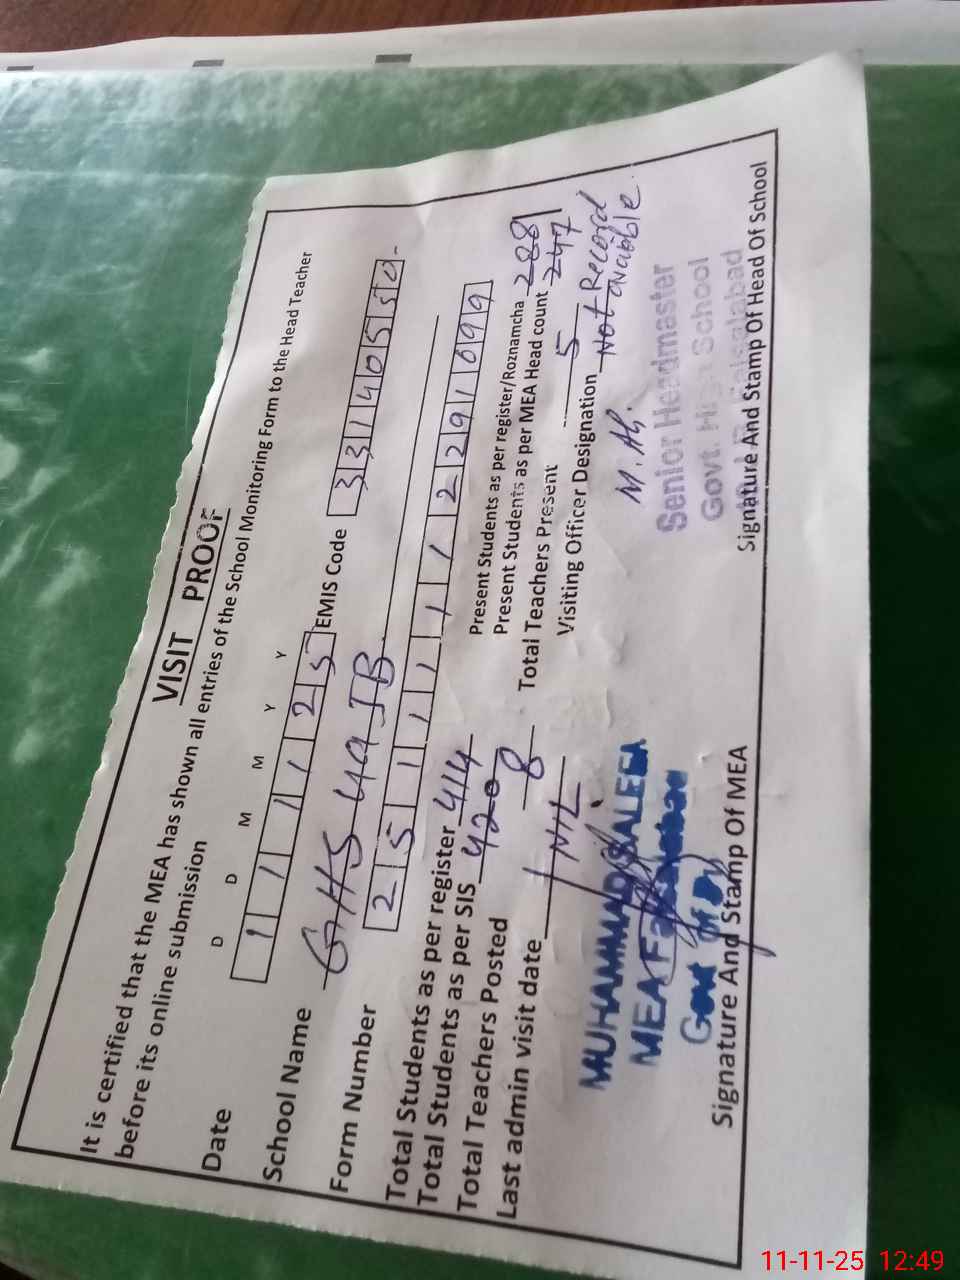 VISIT PROOF
It is certified that the MEA has shown all entries of the School Monitoring Form to the Head Teacher
before its online submission
D D M M Y Y
Date 1 1 1 1 2 5 EMIS Code 3 3 1 4 0 5 5 0
School Name GHS 49 JB
Form Number 2 5 1 1 1 1 1 2 2 9 1 0 9 9
Total Students as per register 414 Present Students as per register/Roznamcha 288
Total Students as per SIS 420 Present Students as per MEA Head count 247
Total Teachers Posted 8 Total Teachers Present 5
Last admin visit date NIL Visiting Officer Designation Not Record
avaibble
MUHAMMAD SALEEM
MEA Faisalabad
M. Ali
Senior Headmaster
Govt. High School
Faisalabad
Signature And Stamp Of MEA Signature And Stamp Of Head Of School
11-11-25 12:49